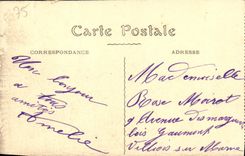 95
Carte Postale
CORRESPONDANCE
ADRESSE
Un bonjour
a tous
amitiés
Amélie
Mademoiselle
Rose Moirot
9 Avenue des marguerites
bois Gaumont
Villiers sur Marne